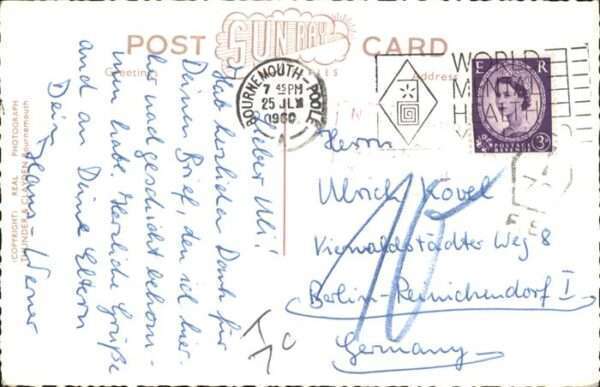 POST CARD
SUN RAY
SERIES
Greetings
Address
BOURNEMOUTH-POOLE
7 45PM
25 JLY
1960
A
WORLD
MENTAL
HEALTH
E R
POSTAGE
REVENUE
3D
COPYRIGHT: REAL PHOTOGRAPH
DUNDER & CLAYDEN Bournemouth
Lieber Uli!
Hab herzlichen Dank für
Deinen Brief, den ich hier-
her nachgeschickt bekom-
men habe. Herzliche Grüße
and an Deine Eltern
Dein Hans-Werner
Herrn
Ulrich Kovel
Vierwaldstädter Weg 8
Berlin-Reinichendorf I
Germany
10
T